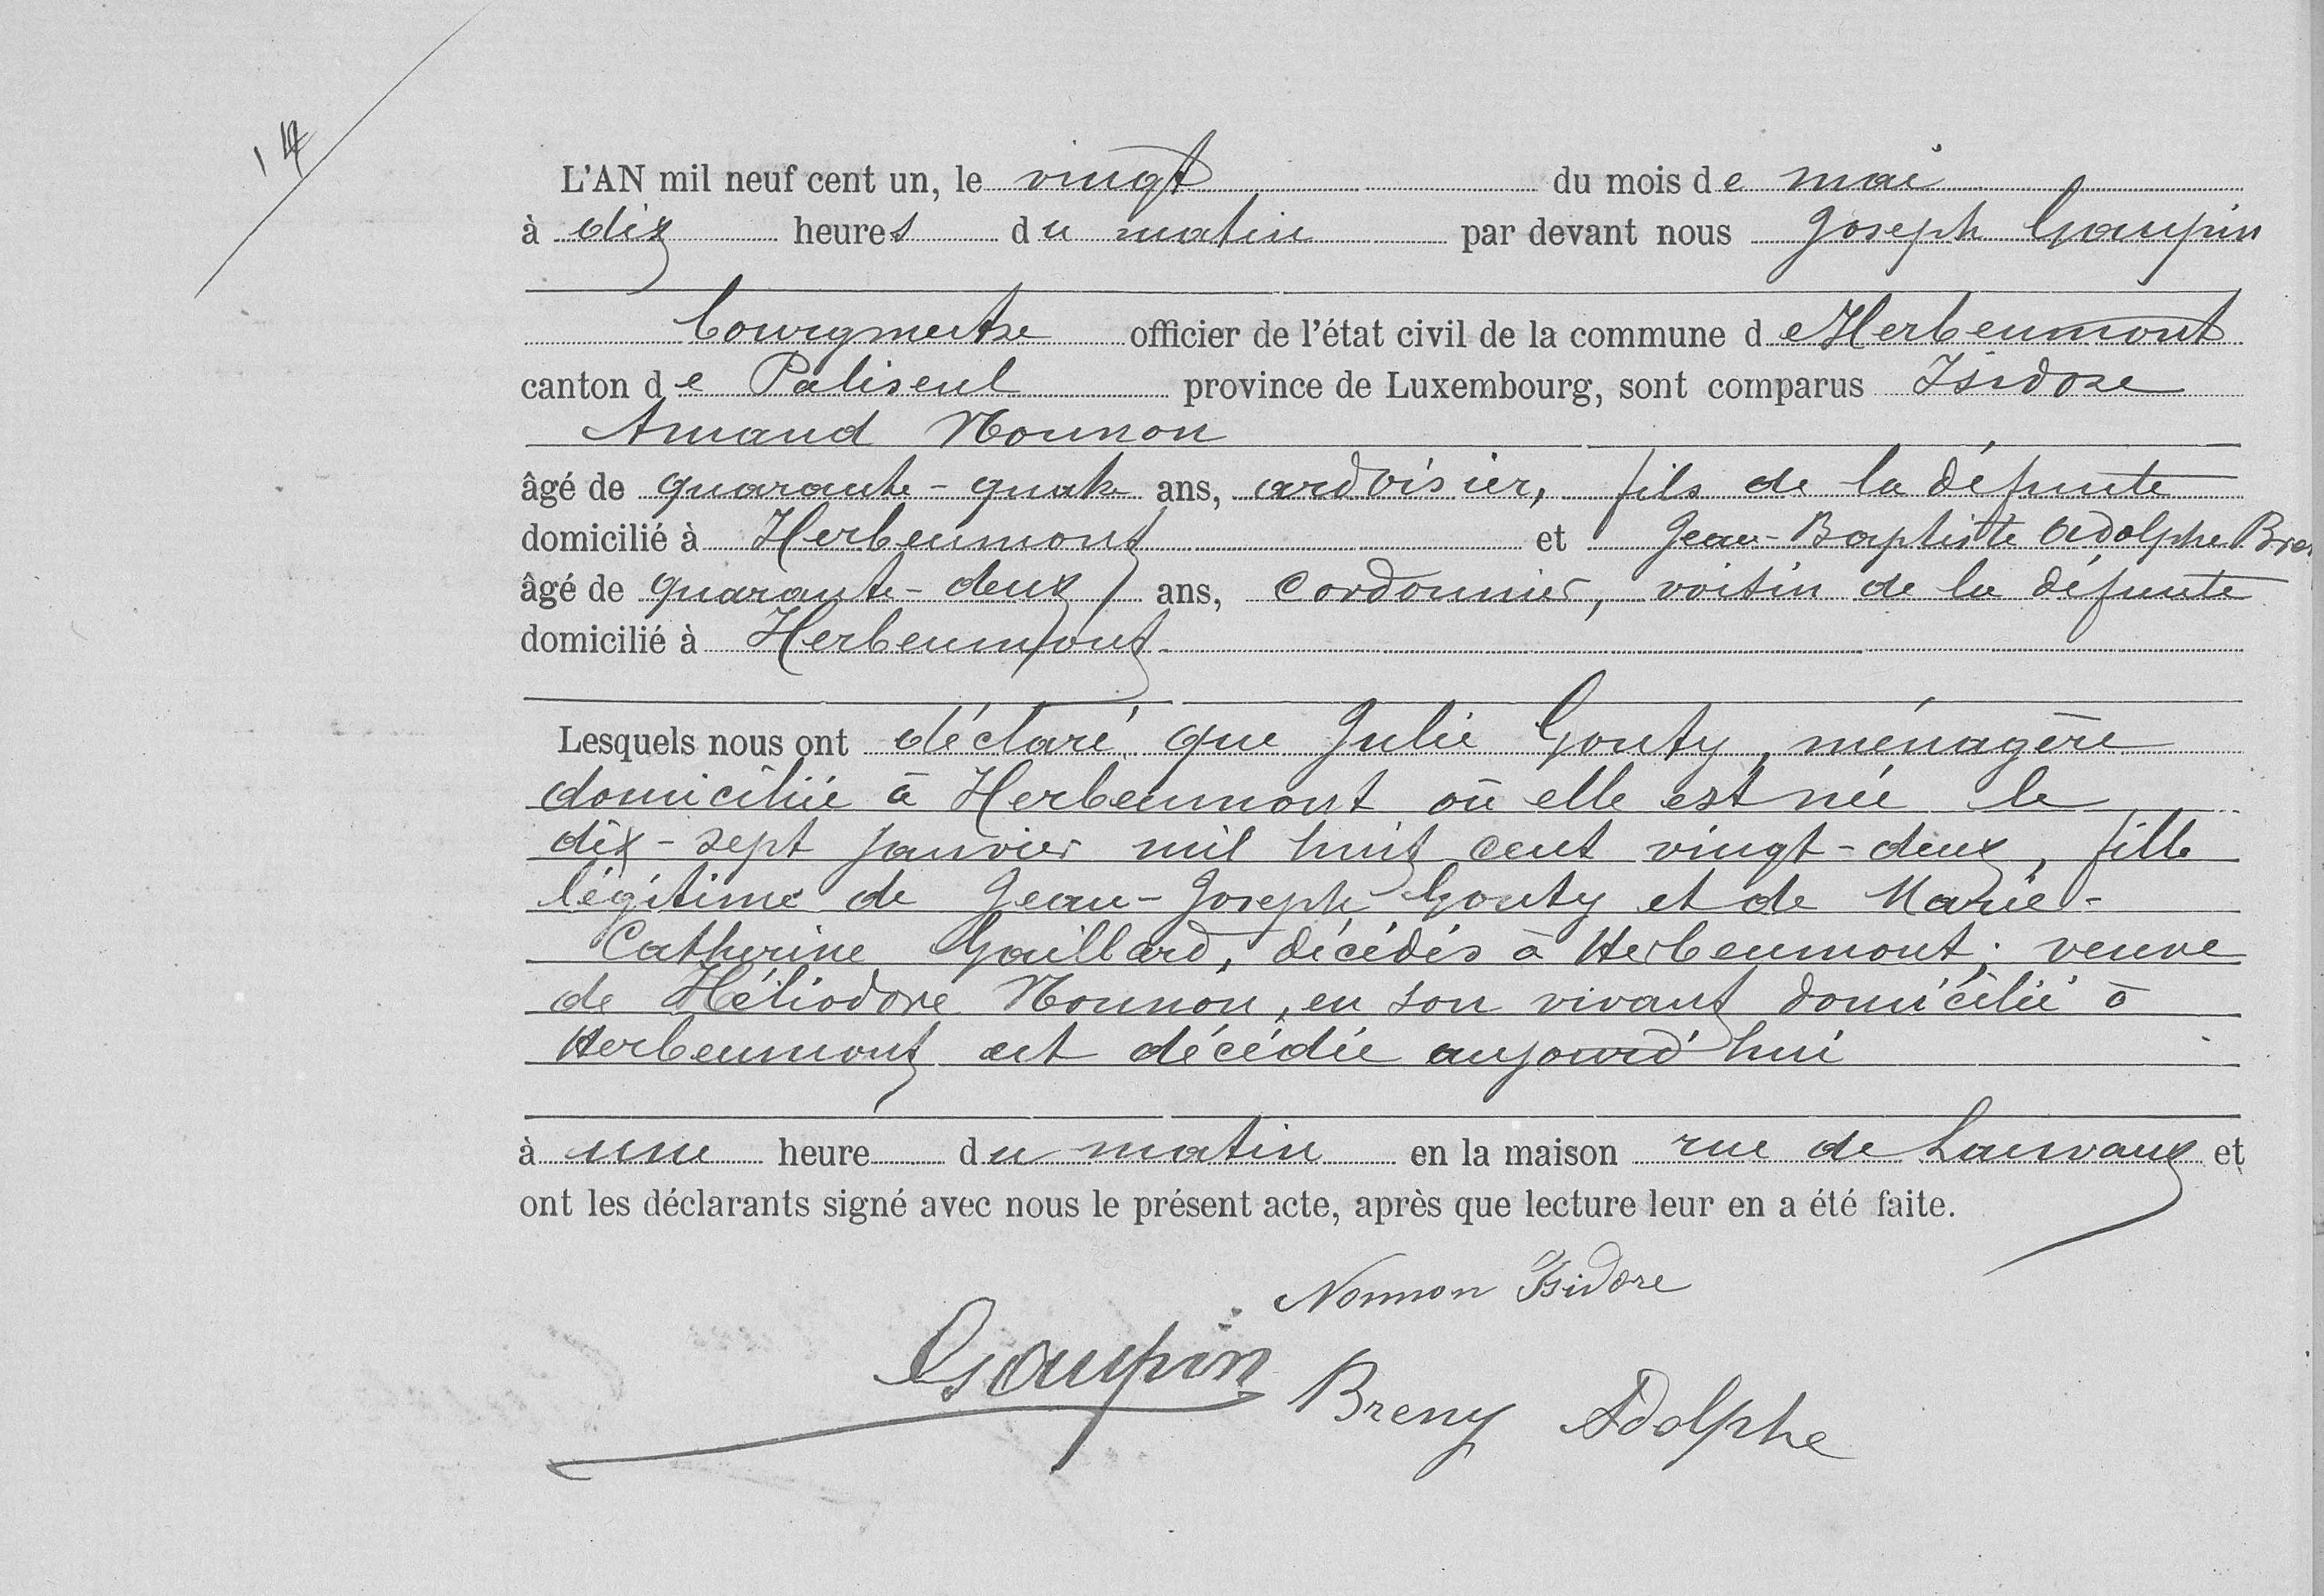 14
L'AN mil neuf cent un, le vingt du mois de mai
à dix heures du matin par devant nous Joseph Gaupin
bourgmestre officier de l'état civil de la commune de Herbeumont
canton de Paliseul province de Luxembourg, sont comparus Isidore
Amand Nonnon
âgé de quarante-quatre ans, ardoisier, fils de la défunte
domicilié à Herbeumont et Jean-Baptiste Adolphe Bre
âgé de quarante-deux ans, cordonnier, voisin de la défunte
domicilié à Herbeumont
Lesquels nous ont déclaré que Julie Gouty, ménagère
domiciliée à Herbeumont où elle est née le
dix-sept janvier mil huit cent vingt-deux, fille
légitime de Jean-Joseph Gouty et de Marie-
Catherine Gaillard, décédés à Herbeumont; veuve
de Héliodore Nonnon, en son vivant domicilié à
Herbeumont est décédée aujourd'hui
à une heure du matin en la maison rue de Lauvaux et
ont les déclarants signé avec nous le présent acte, après que lecture leur en a été faite.
Nonnon Isidore
Gaupin
Breny Adolphe